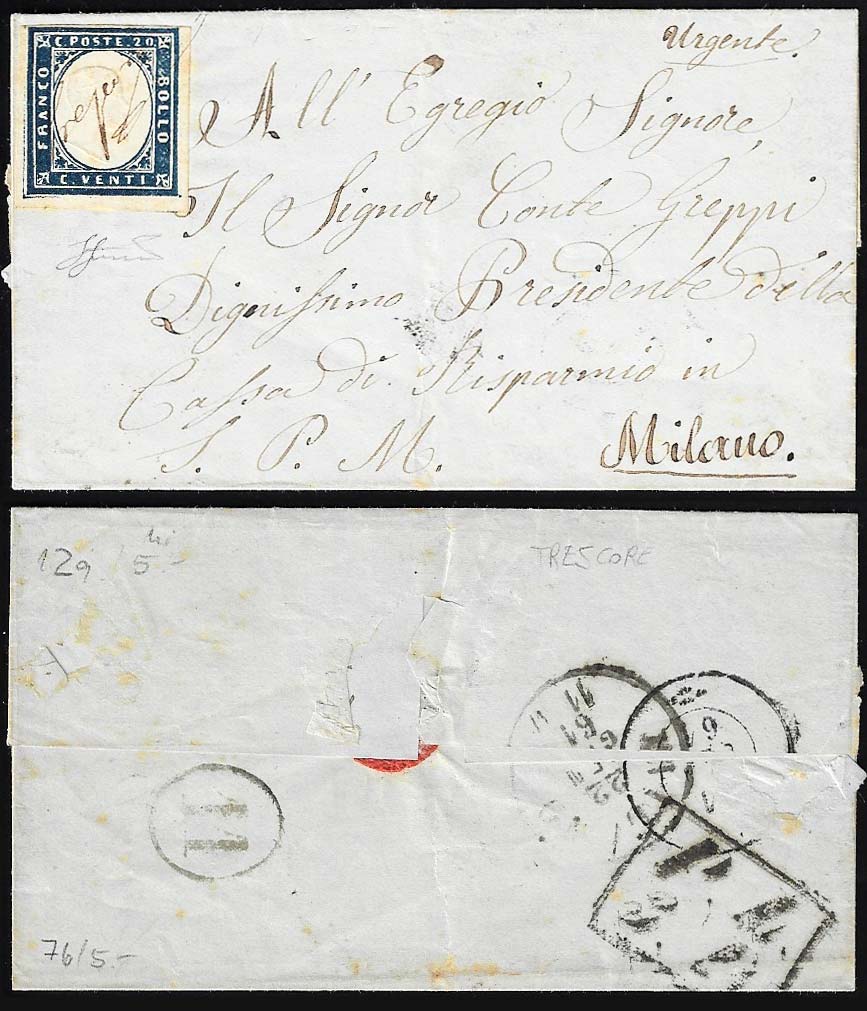 C. POSTE. 20
FRANCO
BOLLO
C. VENTI
Urgente.
All' Egregio Signore,
Il Signor Conte Greppi
Dignissimo Presidente della
Cassa di Risparmio in
S. P. M. Milano.
12a / 5-
TRESCORE
11
61
76/5.-